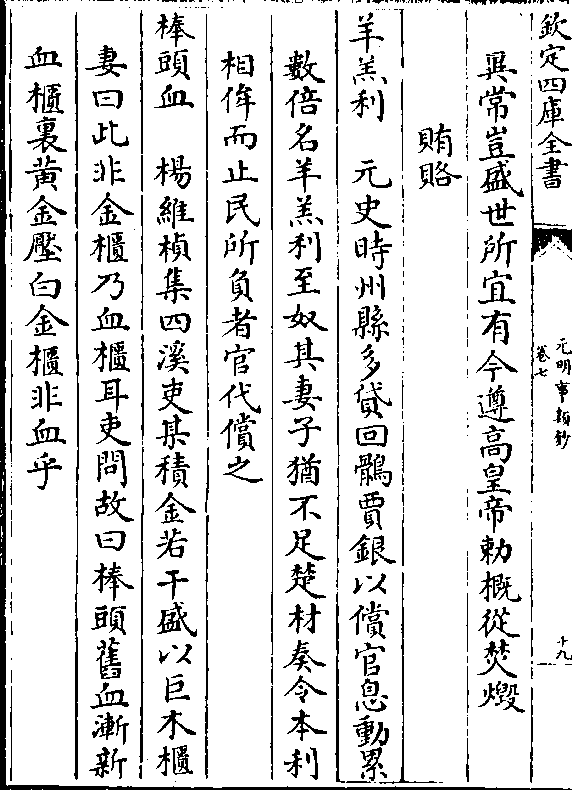 欽定四庫全書
元明事類鈔
卷七
十九
異常豈盛世所宜有今遵高皇帝勅概從焚燬
賄賂
羊羔利　元史時州縣多貸回鶻賈銀以償官息動累
數倍名羊羔利至奴其妻子猶不足楚材奏令本利
相侔而止民所負者官代償之
棒頭血　楊維楨集四溪吏某積金若干盛以巨木櫃
妻曰此非金櫃乃血櫃耳吏問故曰棒頭舊血漸新
血櫃裏黄金壓白金櫃非血乎